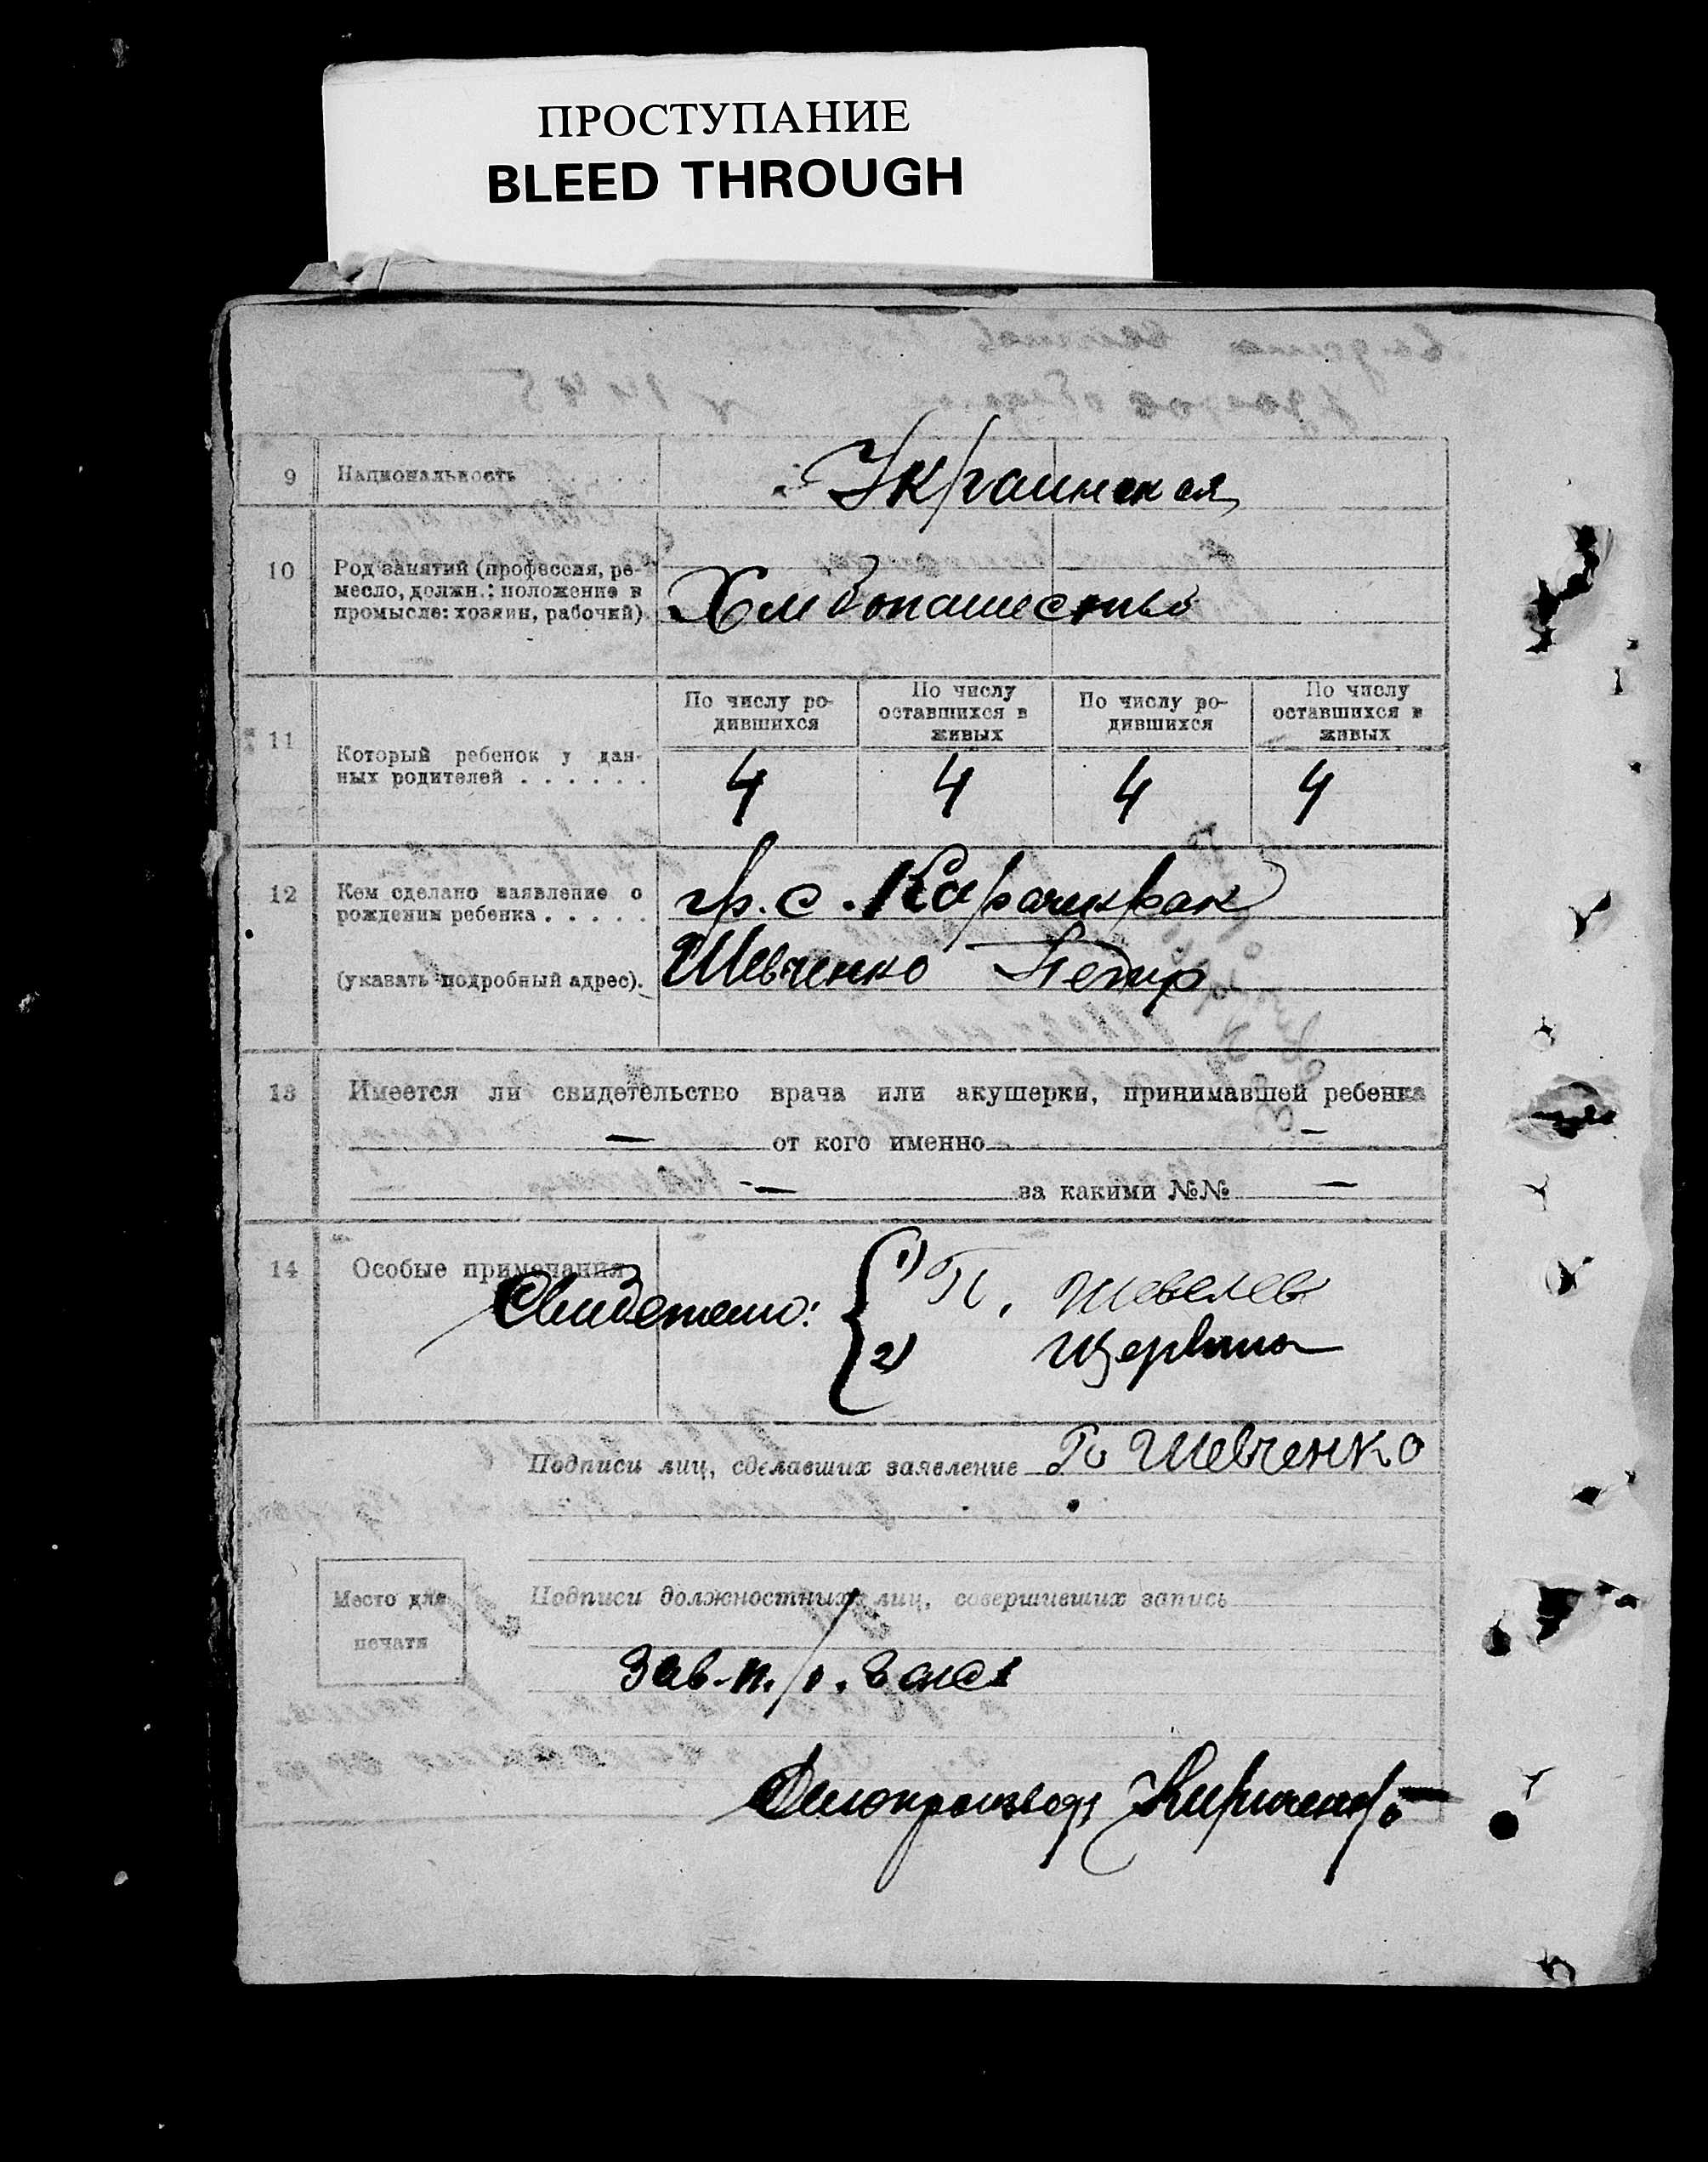 ПРОСТУПАНИЕ
BLEED THROUGH
9 Национальность
Украинская
10 Род занятий (профессия, ре-
месло, должн.: положение в
промысле: хозяин, рабочий).
Хлебопашество
11 Который ребенок у дан-
ных родителей . . . . . .
По числу ро-
дившихся
По числу
оставшихся в
живых
По числу ро-
дившихся
По числу
оставшихся в
живых
4 4 4 4
12 Кем сделано заявление о
рождении ребенка . . . . .
(указать подробный адрес).
гр. с. Карачикрак
Шевченко Петр
13 Имеется ли свидетельство врача или акушерки, принимавшей ребенка
— от кого именно —
— за какими №№ —
14 Особые примечания
Свидетели:
1) П. Шевелев
2) Щербина
Подписи лиц, сделавших заявление П Шевченко
Место для
печати
Подписи должностных лиц, совершивших запись
Зав. п/р.
Делопроизвод